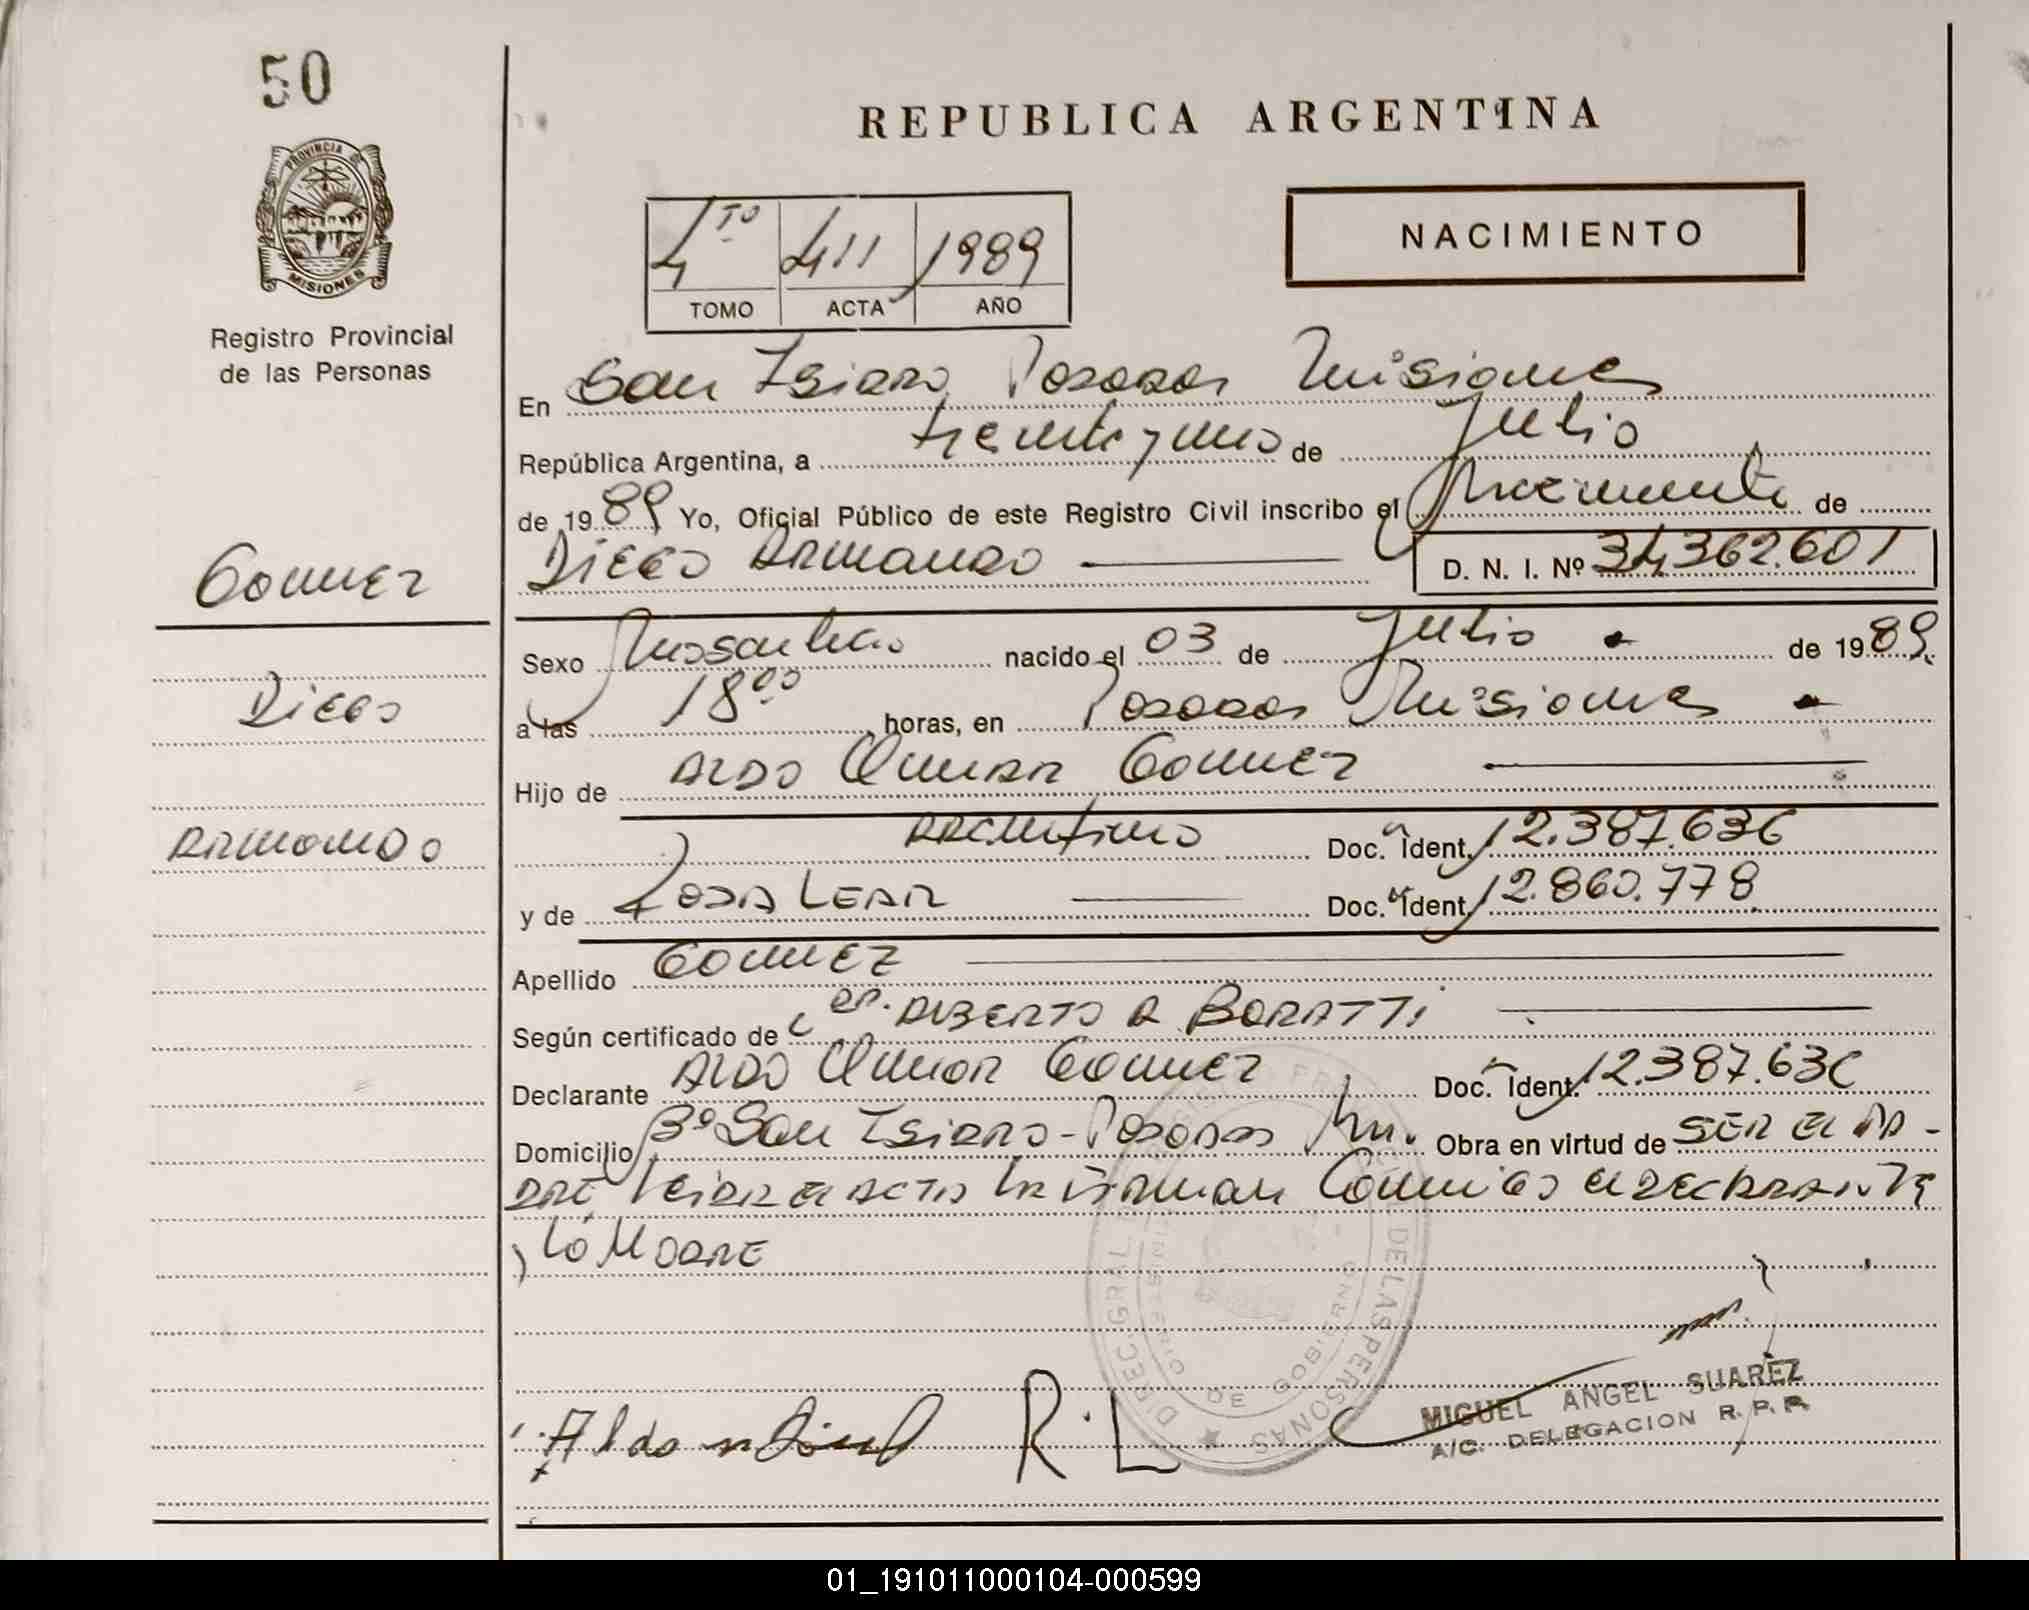 50
REPUBLICA ARGENTINA
PROVINCIA DE
MISIONES
4TO 411 1989
TOMO ACTA AÑO
NACIMIENTO
Registro Provincial
de las Personas
En San Isidro, Posadas Misiones
República Argentina, a treinta y uno de Julio
de 1989 Yo, Oficial Público de este Registro Civil inscribo el Nacimiento de
Diego Armando D. N. I. Nº 34362.601
Gomez
Sexo Masculino nacido el 03 de Julio de 1989
Diego
a las 18 00 horas, en Posadas Misiones
Hijo de Aldo Omar Gomez
Armando
Argentino Doc. Ident. 12.387.636
y de Rosa Lear Doc. Ident. 12.860.778
Apellido Gomez
Según certificado de Alberto A Boratti
Declarante Aldo Omar Gomez Doc. Ident. 12.387.636
Domicilio Bº San Isidro - Posadas Mn. Obra en virtud de ser el pa-
dre, leida el acta la firman Conmigo el declarante
y la Madre
DIREC. GRAL. DEL REGISTRO PROVINCIAL DE LAS PERSONAS
MINISTERIO DE GOBIERNO
Aldo
R. L
MIGUEL ANGEL SUAREZ
A/C. DELEGACION R. P. P.
01_191011000104-000599